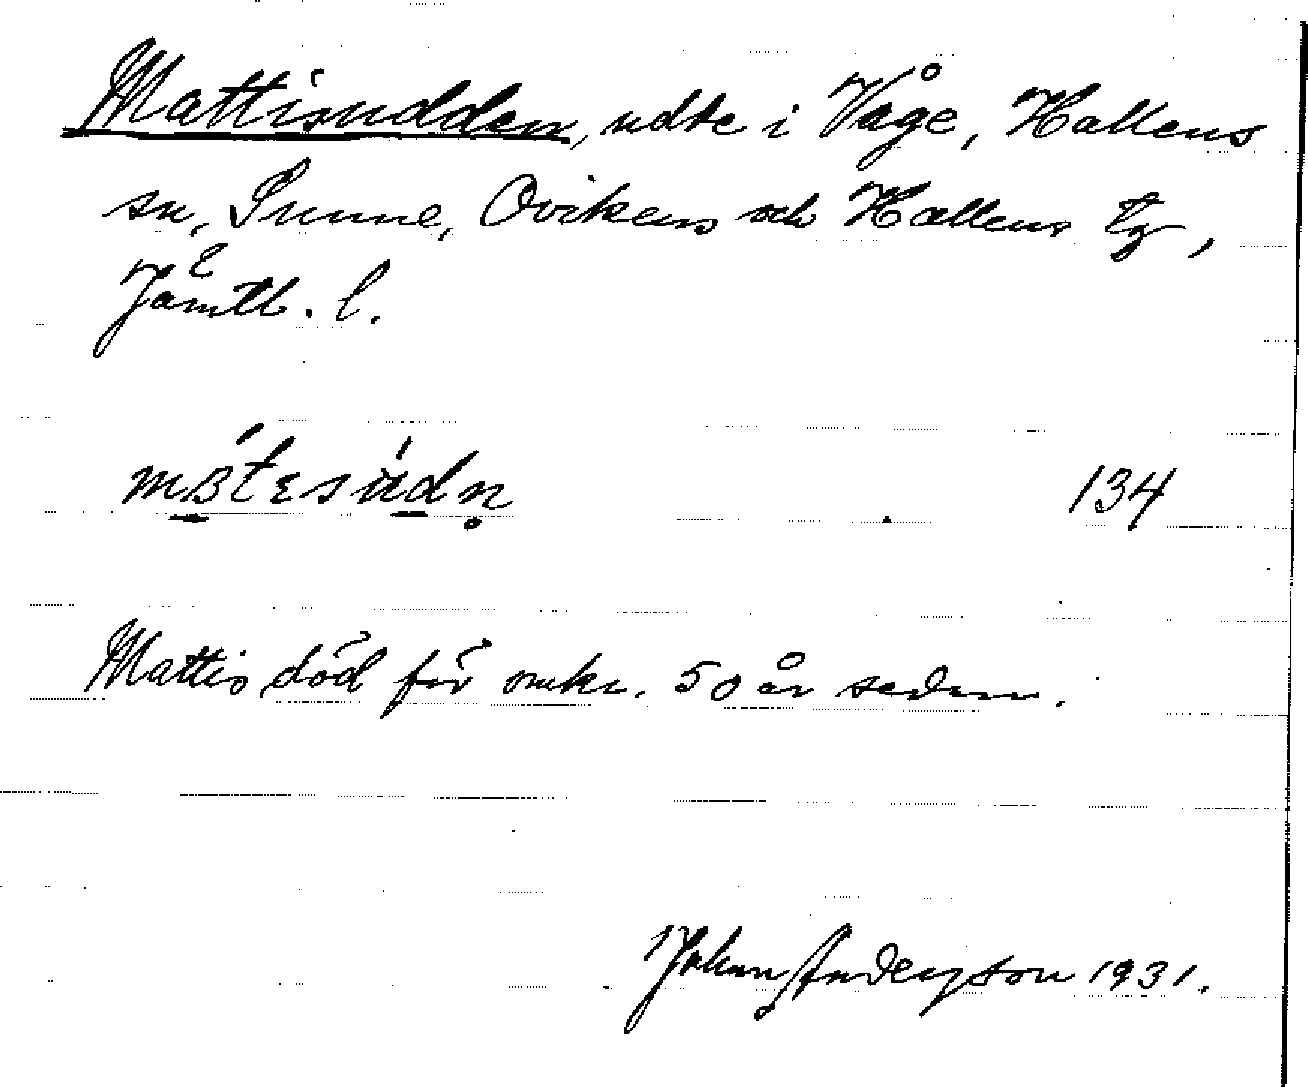 Mattisudden, udde i Våge, Hallens
sn, Sunne, Ovikens och Hallens tg,
Jämtl. l.
134
Mattis död för omkr. 50 år sedan.
Johan Anderson 1931.